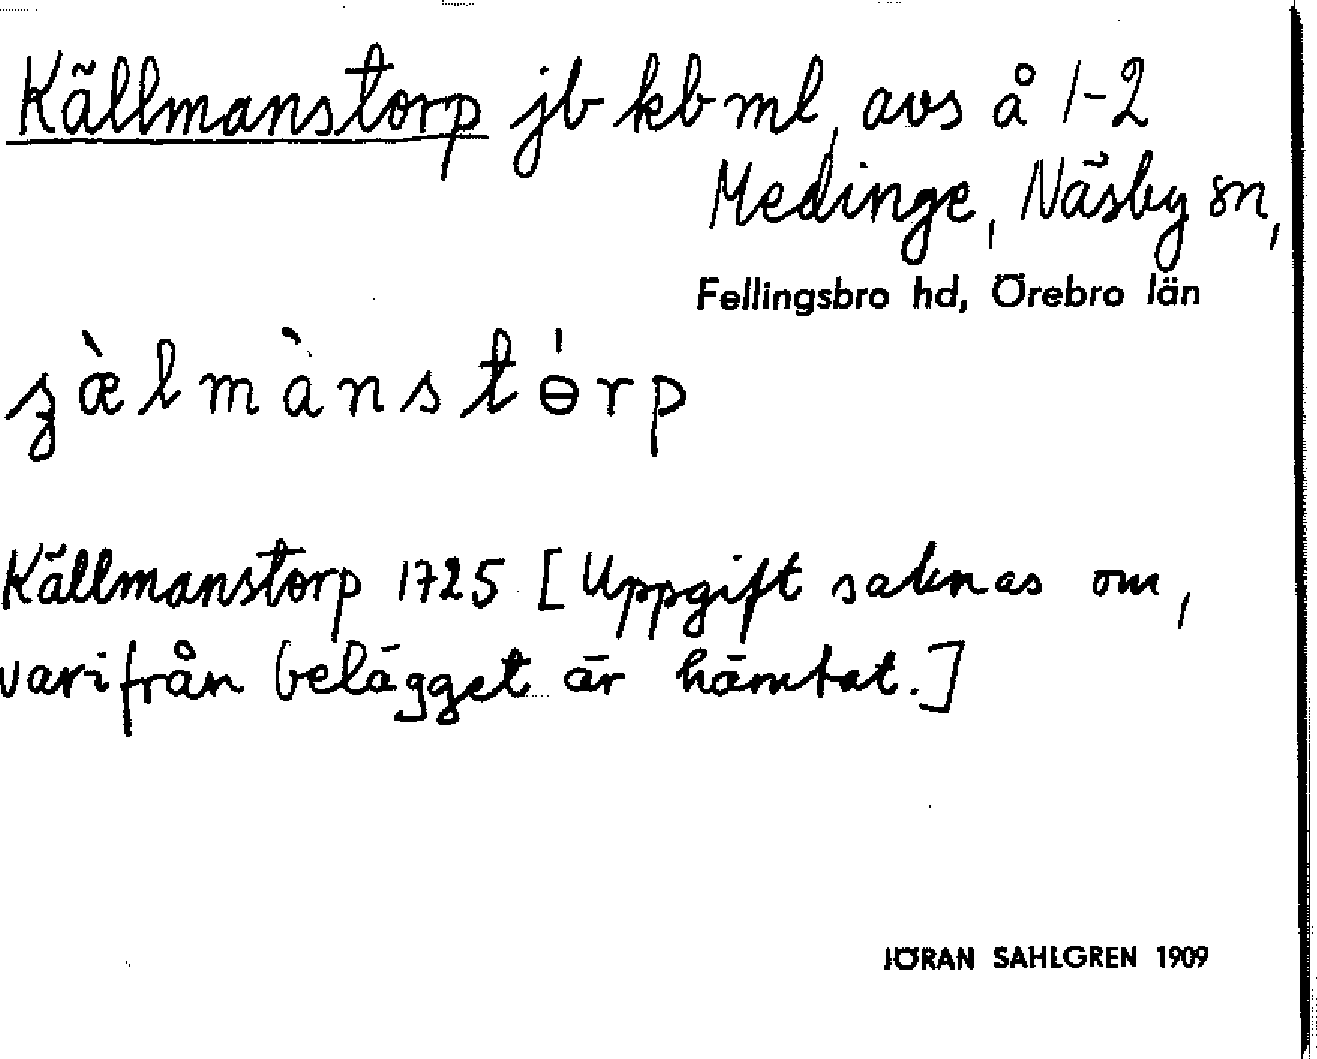 Källmanstorp jb kb ml, avs å 1-2
Medinge, Näsby sn,
Fellingsbro hd, Örebro län
ʂæ̀lmànstɵ́rp
Källmanstorp 1725 [Uppgift saknas om,
varifrån belägget är hämtat.]
JÖRAN SAHLGREN 1909